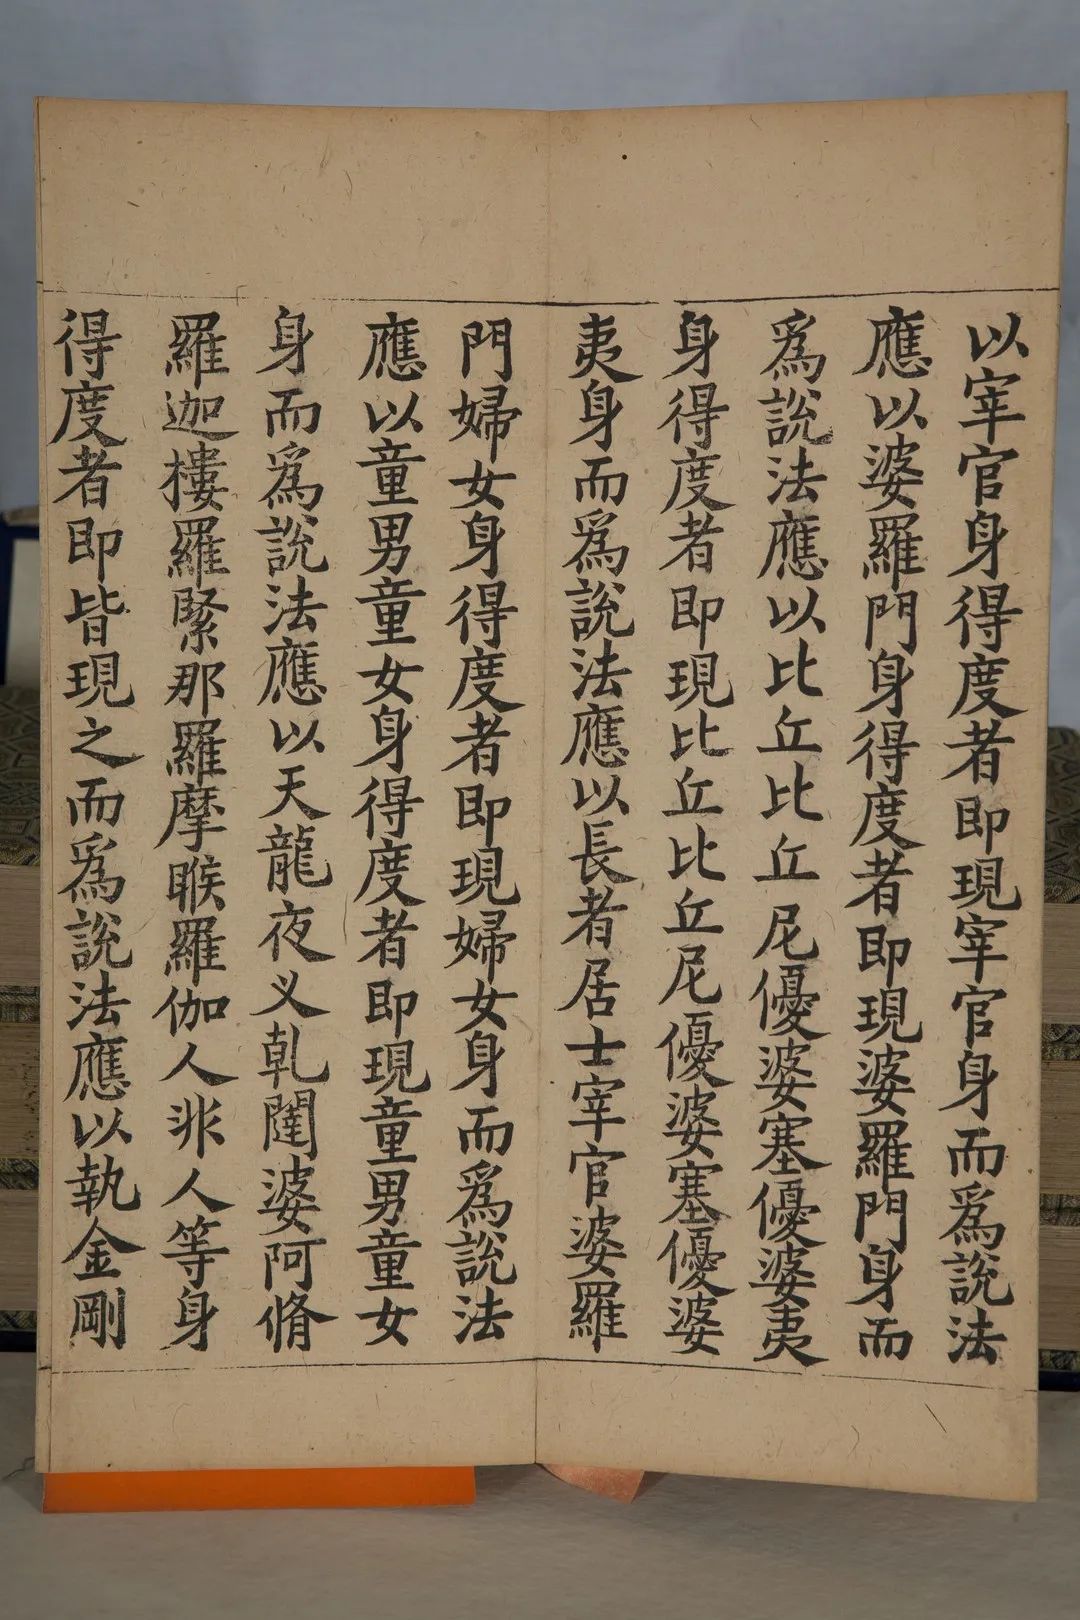 以宰官身得度者即現宰官身而爲說法
應以婆羅門身得度者即現婆羅門身而
爲說法應以比丘比丘尼優婆塞優婆夷
身得度者即現比丘比丘尼優婆塞優婆
夷身而爲說法應以長者居士宰官婆羅
門婦女身得度者即現婦女身而爲說法
應以童男童女身得度者即現童男童女
身而爲說法應以天龍夜义乹闥婆阿脩
羅迦樓羅緊那羅摩睺羅伽人非人等身
得度者即皆現之而爲說法應以執金剛